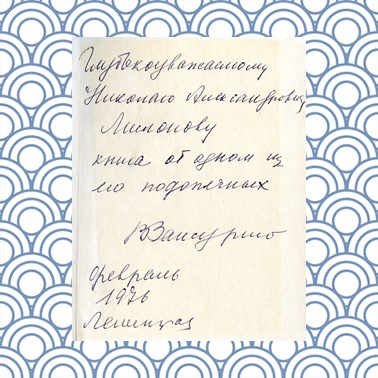 Глубокоуважаемому
Николаю Александровичу
Милонову
книга об одном из
его подопечных
ВВацуро
февраль
1976
Ленинград